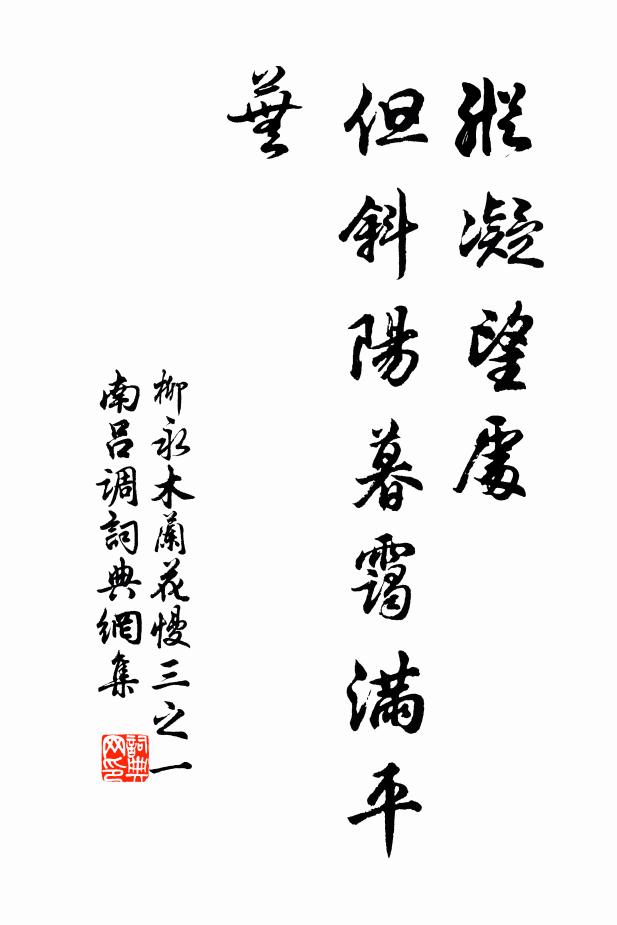 縱凝望處
但斜陽暮靄滿平
蕪
柳永木蘭花慢三之一
南吕调詞典網集
詞典网印